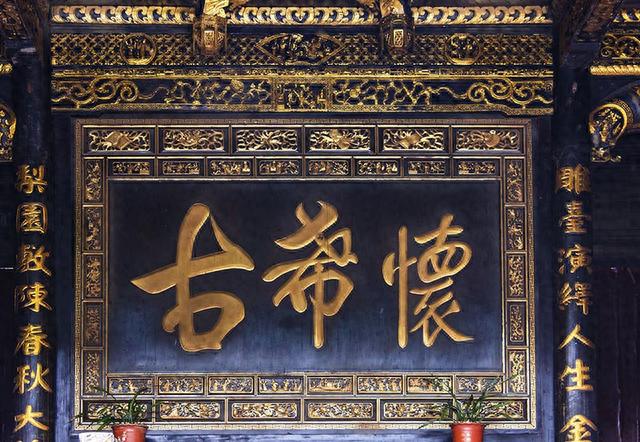 雕臺演繹人生金
懷希古
梨園敷陳春秋大